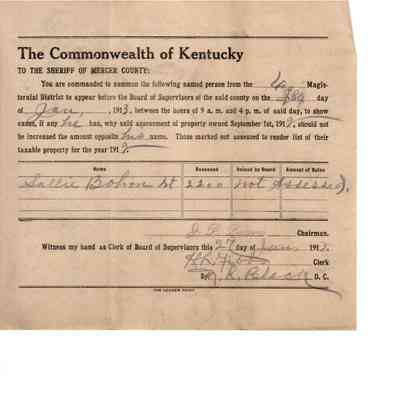 The Commonwealth of Kentucky
TO THE SHERIFF OF MERCER COUNTY:
You are commanded to summon the following named person from the Magis-
terial District to appear before the Board of Supervisors of the said county on the day
of Jan, 1913, between the hours of 9 a. m. and 4 p. m. of said day, to show
cause, if any he has, why said assessment of property owned September 1st, 191, should not
be increased the amount opposite his name. Those marked not assessed to render list of their
taxable property for the year 191
Name Assessed Raised by Board Amount of Raise
Sallie Bohon 2200 not Assessed).
Chairman.
Witness my hand as Clerk of Board of Supervisors this 27 day of Jan, 1913.
Clerk
By Black D. C.
THE LEADER PRINT